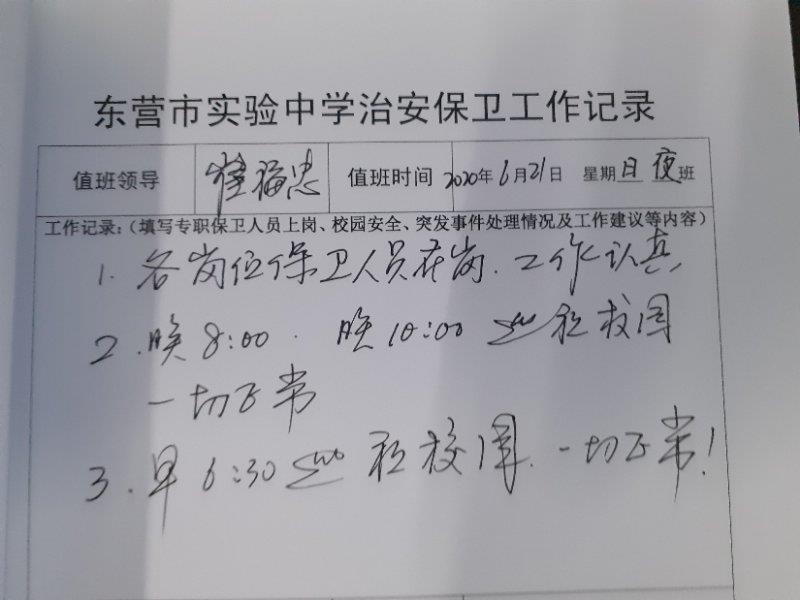 东营市实验中学治安保卫工作记录
值班领导 崔福忠 值班时间 2020年6月21日 星期日夜班
工作记录:(填写专职保卫人员上岗、校园安全、突发事件处理情况及工作建议等内容)
1. 各岗位保卫人员在岗.工作认真
2. 晚8:00 . 晚10:00 巡视校园
一切正常
3. 早6:30巡视校园.一切正常!